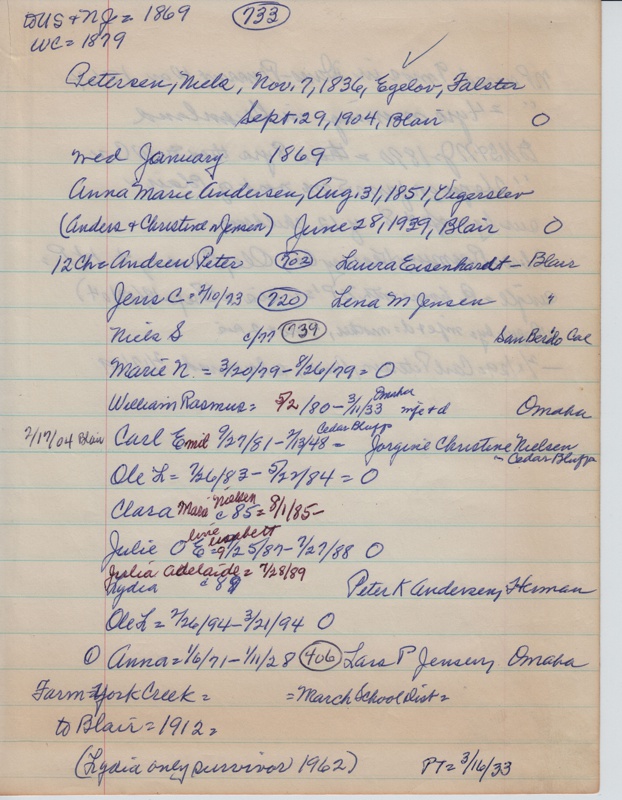 to US & NJ = 1869 733
WC = 1879
Petersen, Niels, Nov. 7, 1836, Egelov, Falster
Sept. 29, 1904, Blair O
Wed January 1869
Anna Marie Andersen, Aug. 31, 1851, Vigerslev
(Anders & Christine n Jensen) June 28, 1939, Blair O
12 Ch = Andrew Peter 702 Laura Eisenhardt - Blair
Jens C = 2/10/73 720 Lena M Jensen "
Niels S c/77 739 San Ber'do Cal
Marie N. = 3/20/79 - 8/26/79 = O
William Rasmus = 5/2/80 - 3/11/33 Omaha mfe & d Omaha
2/17/04 Blair Carl Emil 9/27/81 - 2/13/48 = Cedar Bluffs Jorgine Christine Nielsen
- Cedar Bluffs
Ole L = 7/26/83 - 5/22/84 = O
Clara Maria Nielsen c 85 = 8/1/85 -
Julie O line Elisabett E = 9/25/87 - 7/27/88 O
Julia Adelaide = 7/28/89
Lydia c 89 Peter K Andersen, Herman
Ole L = 2/26/94 - 3/21/94 O
O Anna = 1/6/71 - 1/11/28 406 Lars P Jensen, Omaha
Farm = York Creek = = March School Dist =
to Blair = 1912 =
(Lydia only survivor 1962) PT = 3/16/33